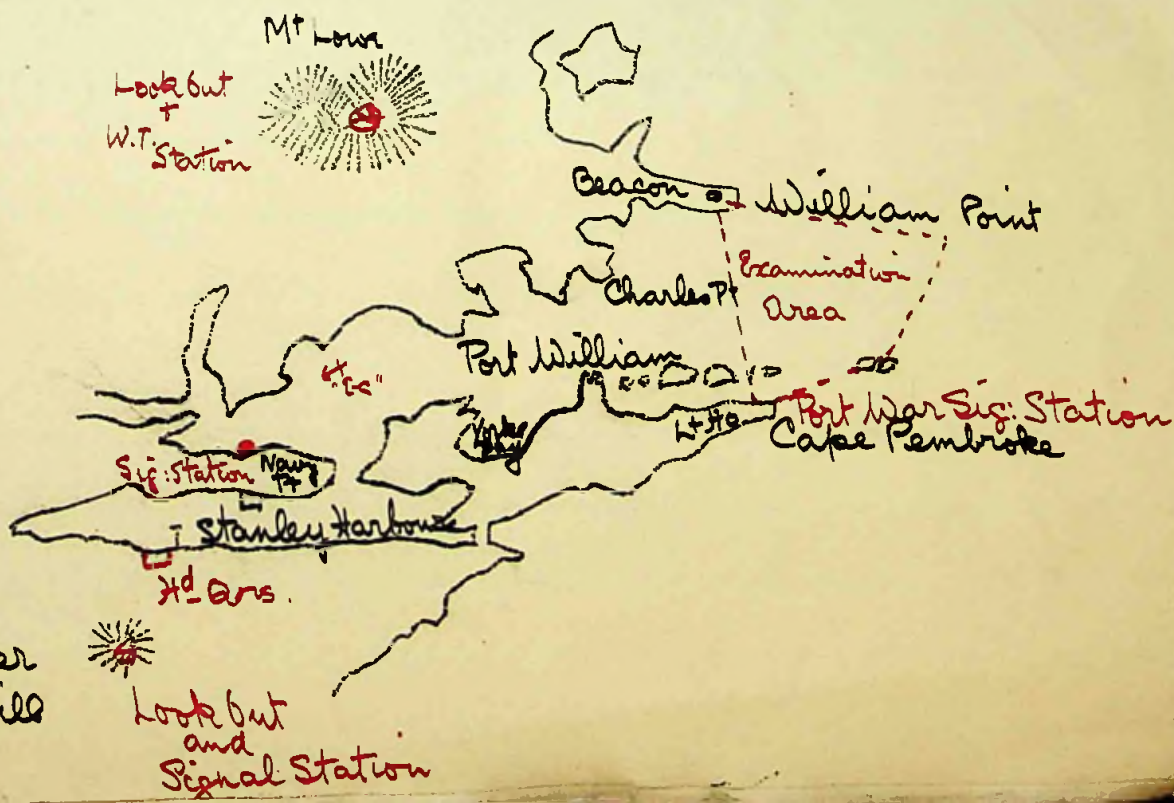 Mt Lowe
Look Out
+
W.T. Station
Beacon
William Point
Examination
Area
Charles Pt
Port William
"C"
Yorke
Bay
Lt Ho
Port War Sig: Station
Cape Pembroke
Sig: Station
Navy
Pt
Stanley Harbour
Hd Qrs.
Look Out
and
Signal Station